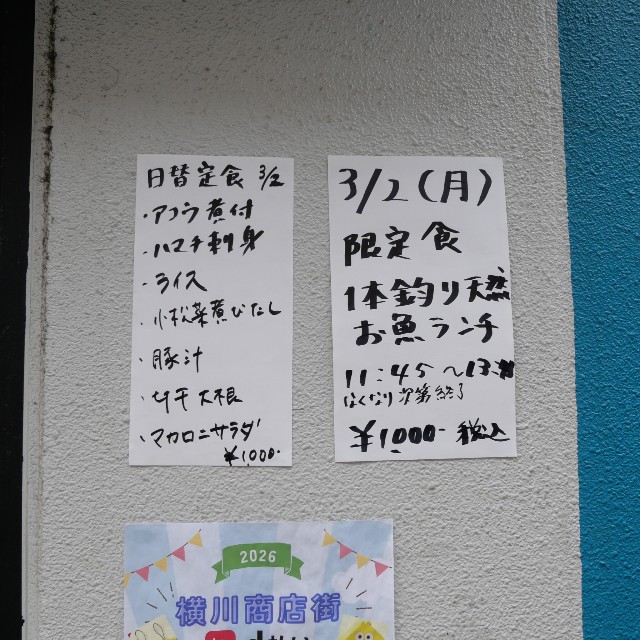 日替定食 3/2
・アコウ煮付
・ハマチ刺身
・ライス
・小松菜煮びたし
・豚汁
・切干大根
・マカロニサラダ
¥1,000-
3/2(月)
限定食
1本釣り天然
お魚ランチ
11:45〜13:
なくなり次第終了
¥1,000- 税込
2026
横川商店街